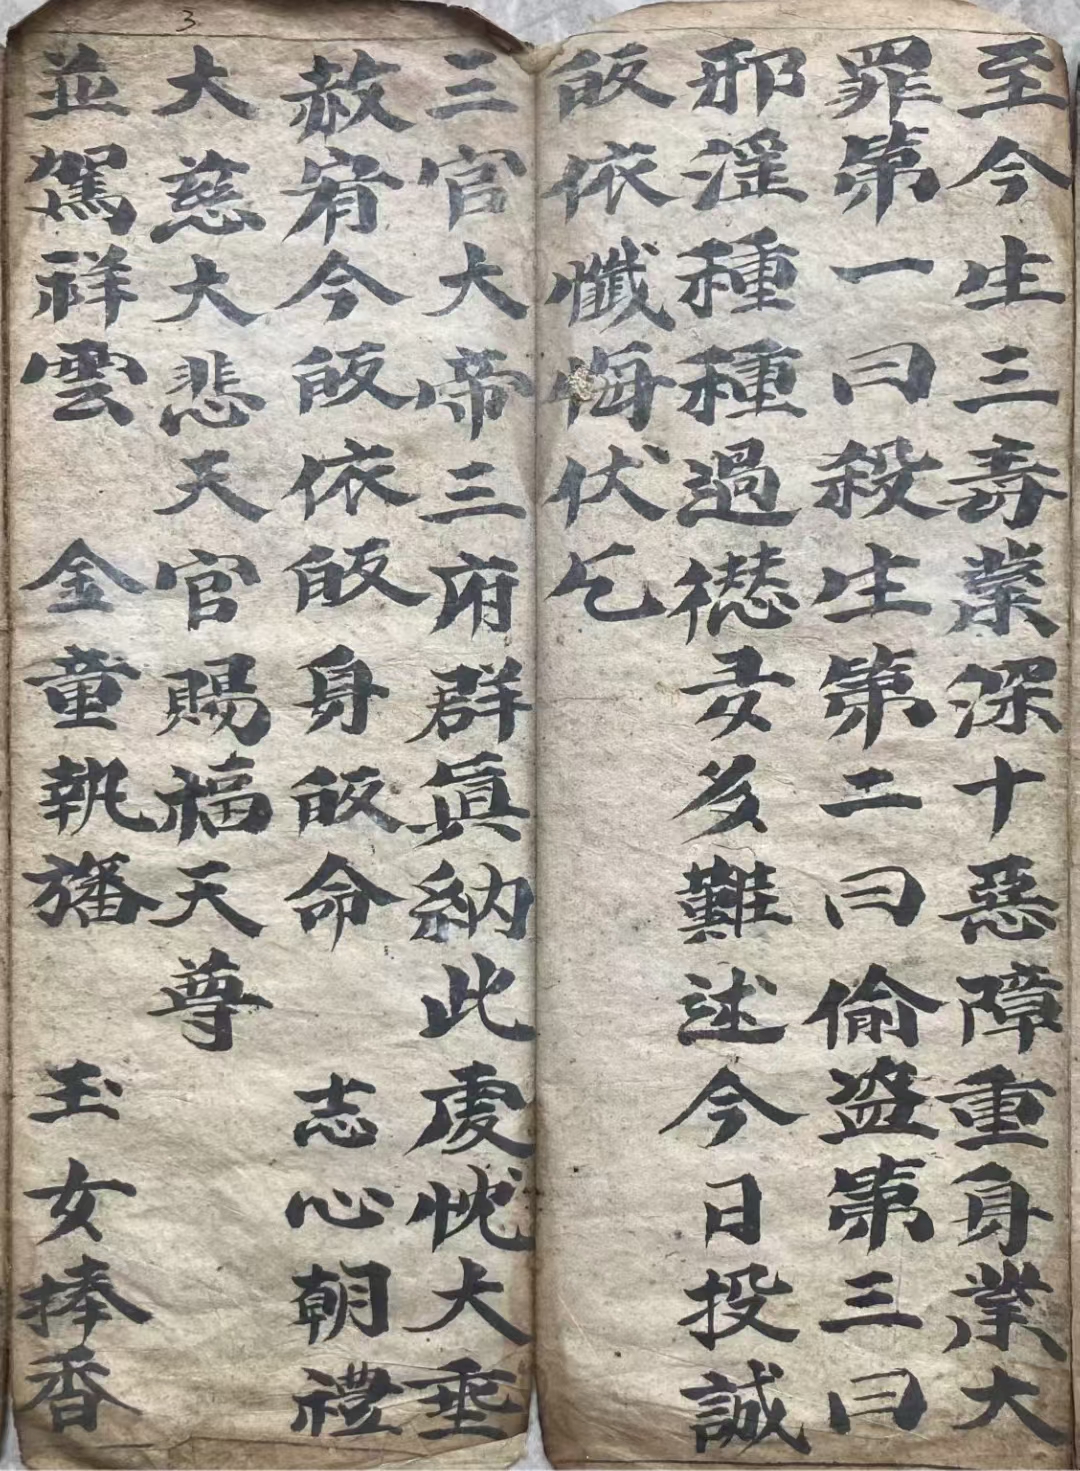 至今生三壽業深十惡障重身業大
罪第一曰殺生第二曰偷盜第三曰
邪淫種種過愆多難述今日投誠
皈依懺悔伏乞
三官大帝三府群眞納此虔忱大垂
赦宥今皈依皈身皈命 志心朝禮
大慈大悲天官賜福天尊
並駕祥雲 金童執旛 玉女捧香
3